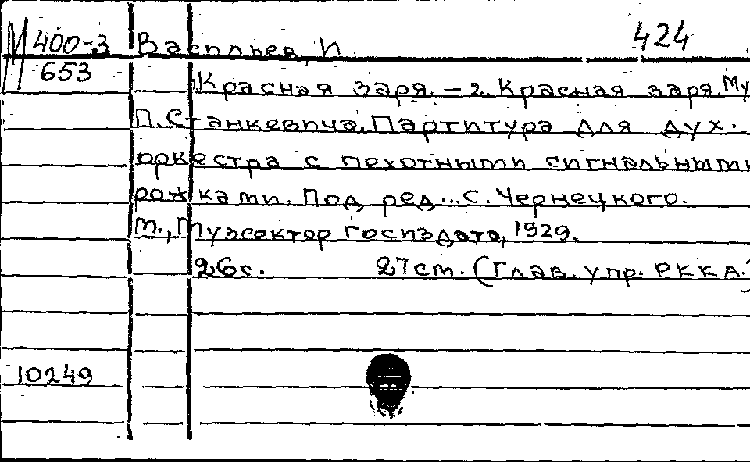 М 400-3 Васильев, И 424
653 Красная заря. – 2. Красная заря. Му
П. Станкевича. Партитура для дух.
оркестра с пехотными сигнальными
рожками. Под ред. С. Чернецкого.
М., Музсектор Госиздата, 1929.
26с. 27 см. (Глав. упр. РККА.)
10249